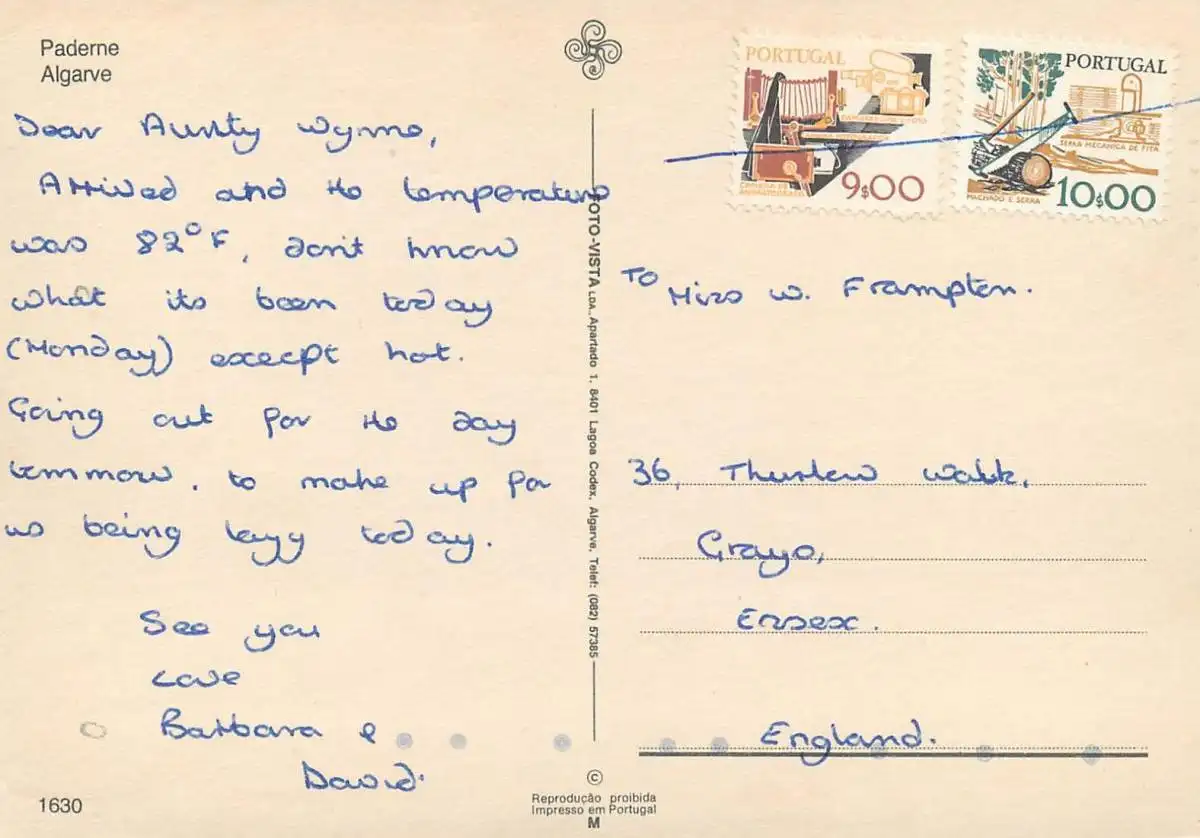 Paderne
Algarve
Dear Aunty Wynne,
Arrived and the temperature
was 82°F, don't know
what its been today
(Monday) except hot.
Going out for the day
tommow, to make up for
us being lazy today.
See you
Love
Barbara &
David.
1630
FOTO-VISTA LDA., Apartado 1, 8401 Lagoa Codex, Algarve, Telef: (082) 57385
©
Reprodução proibida
Impresso em Portugal
M
PORTUGAL
9$00
PORTUGAL
SERRA MECÂNICA DE FITA
MACHADO E SERRA
10$00
To Miss W. Frampton.
36, Thurlow Walk,
Grays,
Essex.
England.